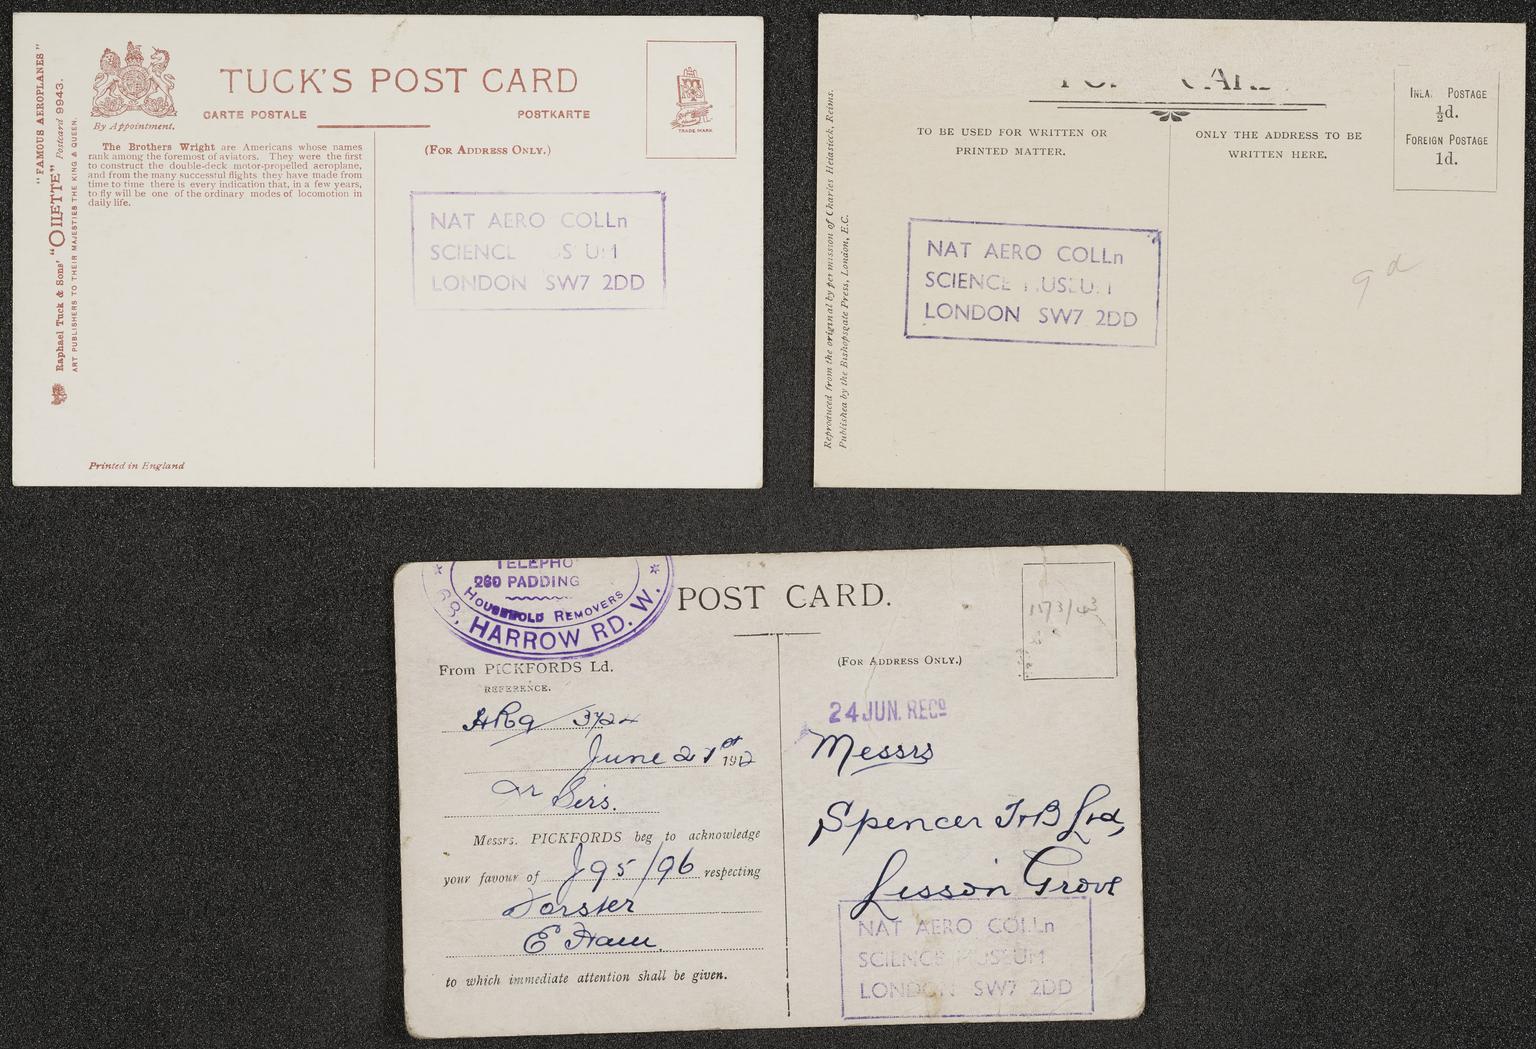 "FAMOUS AEROPLANES"
Raphael Tuck & Sons' "OILETTE" Postcard 9943.
ART PUBLISHERS TO THEIR MAJESTIES THE KING & QUEEN.
By Appointment.
TUCK'S POST CARD
CARTE POSTALE
POSTKARTE
TRADE MARK
(FOR ADDRESS ONLY.)
The Brothers Wright are Americans whose names
rank among the foremost of aviators. They were the first
to construct the double-deck motor-propelled aeroplane,
and from the many successful flights they have made from
time to time there is every indication that, in a few years,
to fly will be one of the ordinary modes of locomotion in
daily life.
NAT AERO COLLn
SCIENCE MUSEUM
LONDON SW7 2DD
Printed in England
Reproduced from the original by permission of Charles Heidsieck, Reims.
Published by the Bishopsgate Press, London, E.C.
TO BE USED FOR WRITTEN OR
PRINTED MATTER.
ONLY THE ADDRESS TO BE
WRITTEN HERE.
INLA. POSTAGE
½d.
FOREIGN POSTAGE
1d.
NAT AERO COLLn
SCIENCE MUSEUM
LONDON SW7 2DD
9d
TELEPHO
260 PADDING
HOUSEHOLD REMOVERS
68, HARROW RD. W.
POST CARD.
From PICKFORDS Ld.
REFERENCE.
3724
June 21st 1912
Dr Sirs.
Messrs. PICKFORDS beg to acknowledge
your favour of J95/96 respecting
Forster
E Ham
to which immediate attention shall be given.
(FOR ADDRESS ONLY.)
24 JUN. RECD
Messrs
Spencer Ltd,
Lisson Grove
NAT AERO COLLn
SCIENCE MUSEUM
LONDON SW7 2DD